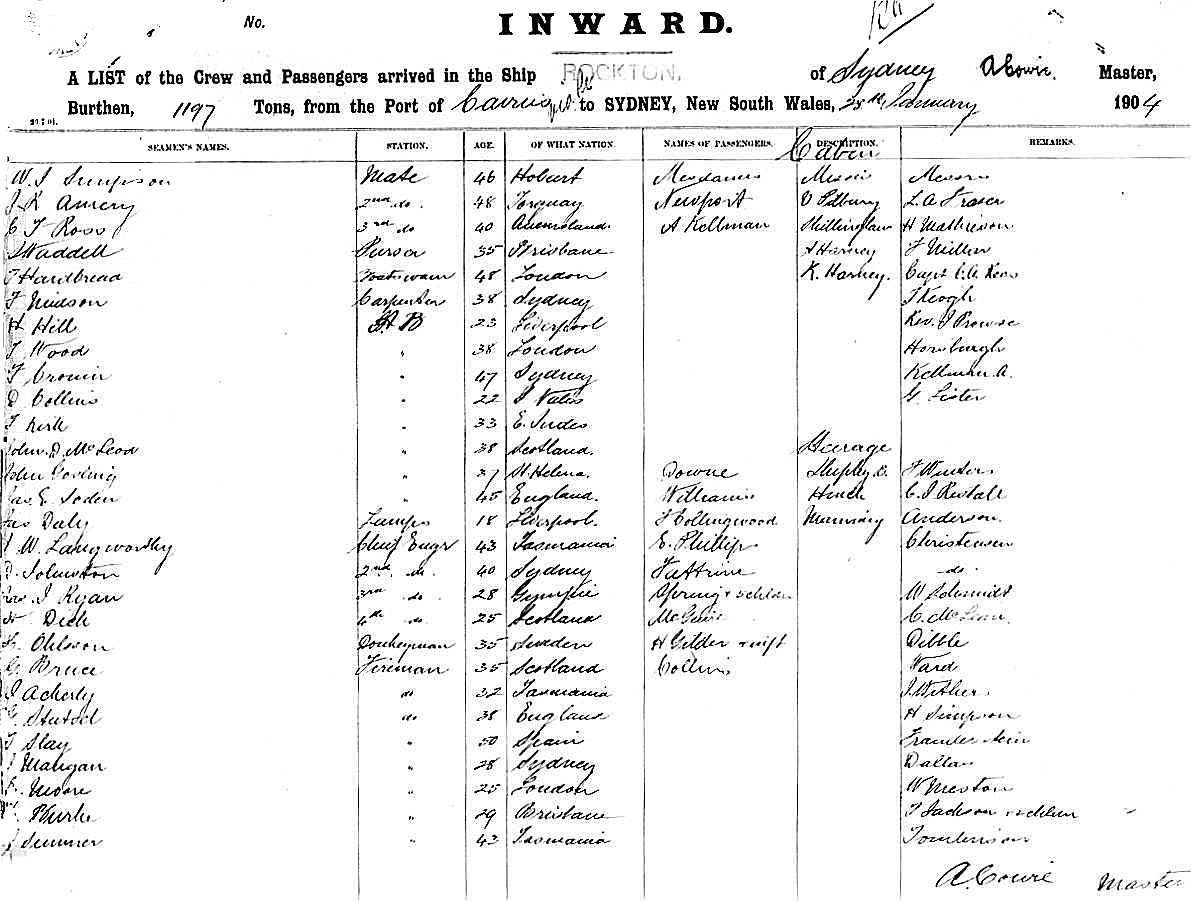 No. INWARD.
A LIST of the Crew and Passengers arrived in the Ship ROCKTON. of Sydney A Cowie. Master,
Burthen, 1197 Tons, from the Port of Cairns to SYDNEY, New South Wales, 28th January 1904
SEAMEN'S NAMES. STATION. AGE. OF WHAT NATION. NAMES OF PASSENGERS. DESCRIPTION. REMARKS.
Cabin
W. J Simpson Mate 46 Hobart Mesdames Misses Messrs
2nd do. 48 Torquay Newport L. A Fraser
C T Ross 3rd do 40 Queensland. A Kellman H Mathieson
Waddell Purser 35 Brisbane A Harney F Miller
T Hardbread Boatswain 48 London K. Harney. Capt C. A
Carpenter 38 Sydney T Keogh
H Hill A B 23 Liverpool Rev. J Prowse
T Wood " 38 London Horsburgh
T Cronin " 47 Sydney Kellman A.
D Collins " 22 G. Lister
T Kirk " 33 E. Indes
John. D. McLeod " 38 Scotland. Steerage
John Gosling " 37 St. Helena. Downe Shipley C. F Winters
Jas E. Soden " 45 England. Williams Hinch
Jas Daly Lamps 18 Liverpool. F Collingwood Manning Anderson.
J W. Langworthy Chief Engr 43 Tasmania E. Phillips Christensen
D. Johnston 2nd do. 40 Sydney do.
J Ryan 3rd do. 28 Gympie Spring + children W Schmidt
Dick 4th do. 25 Scotland McGuire C. McLean.
Ohlsson Donkeyman 35 Sweden H Gilder + wife Dibble
G. Bruce Fireman 35 Scotland Collins Ward
J Acherly do 32 Tasmania J. Wither.
do. 38 England H Simpson
T Slay " 50 Spain
J Mangan " 28 Sydney Dallas
Moore " 25 London W Meston
Burke " 29 Brisbane T Jackson + children
J Sumner " 43 Tasmania Tomlinson
A. Cowie Master